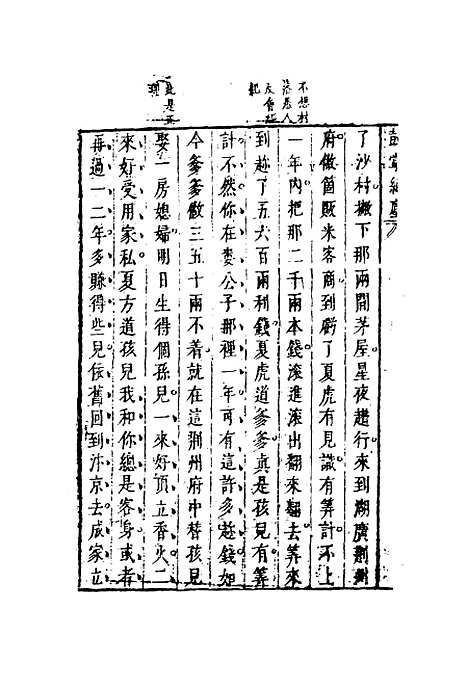 不想村
落愚人
友會打
記
此是正
理
了沙村撇下那兩間茅屋星夜趲行來到湖廣荆州
府做箇販米客商到虧了夏虎有見識有筭計不上
一年內把那二千兩本錢滚進滚出翻來翻去筭來
到趂了五六百兩利錢夏虎道爹爹真是孩兒有筭
計不然你在婁公子那裡一年可有這許多趂錢如
今爹爹數三五十兩不着就在這荆州府中替孩兒
娶一房媳婦明日生得個孫兒一來好頂立香火二
來好受用家私夏方道孩兒我和你總是客身或者
再過一二年多賺得些兒依舊回到汴京去成家立